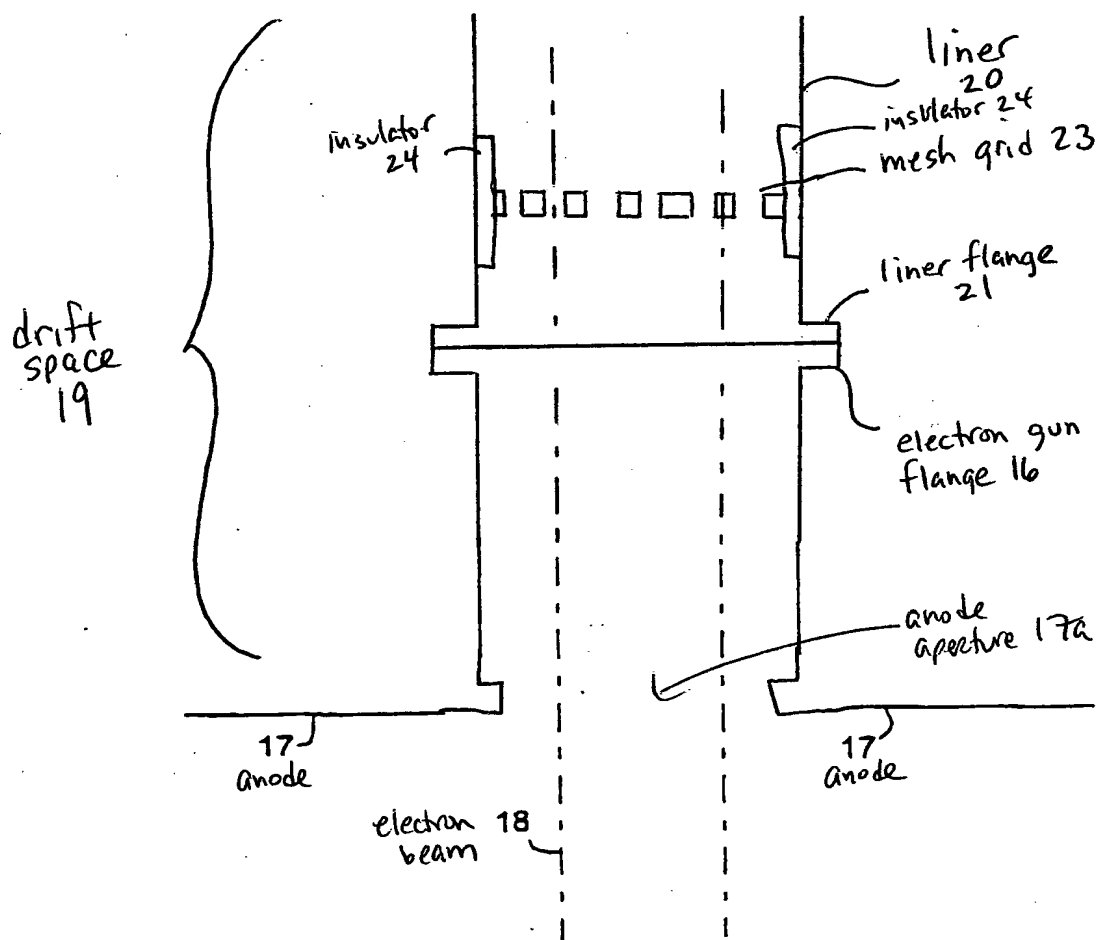 liner
20
insulator
24
insulator 24
mesh grid 23
liner flange
21
drift
space
19
electron gun
flange 16
anode
aperture 17a
17
anode
17
anode
electron 18
beam